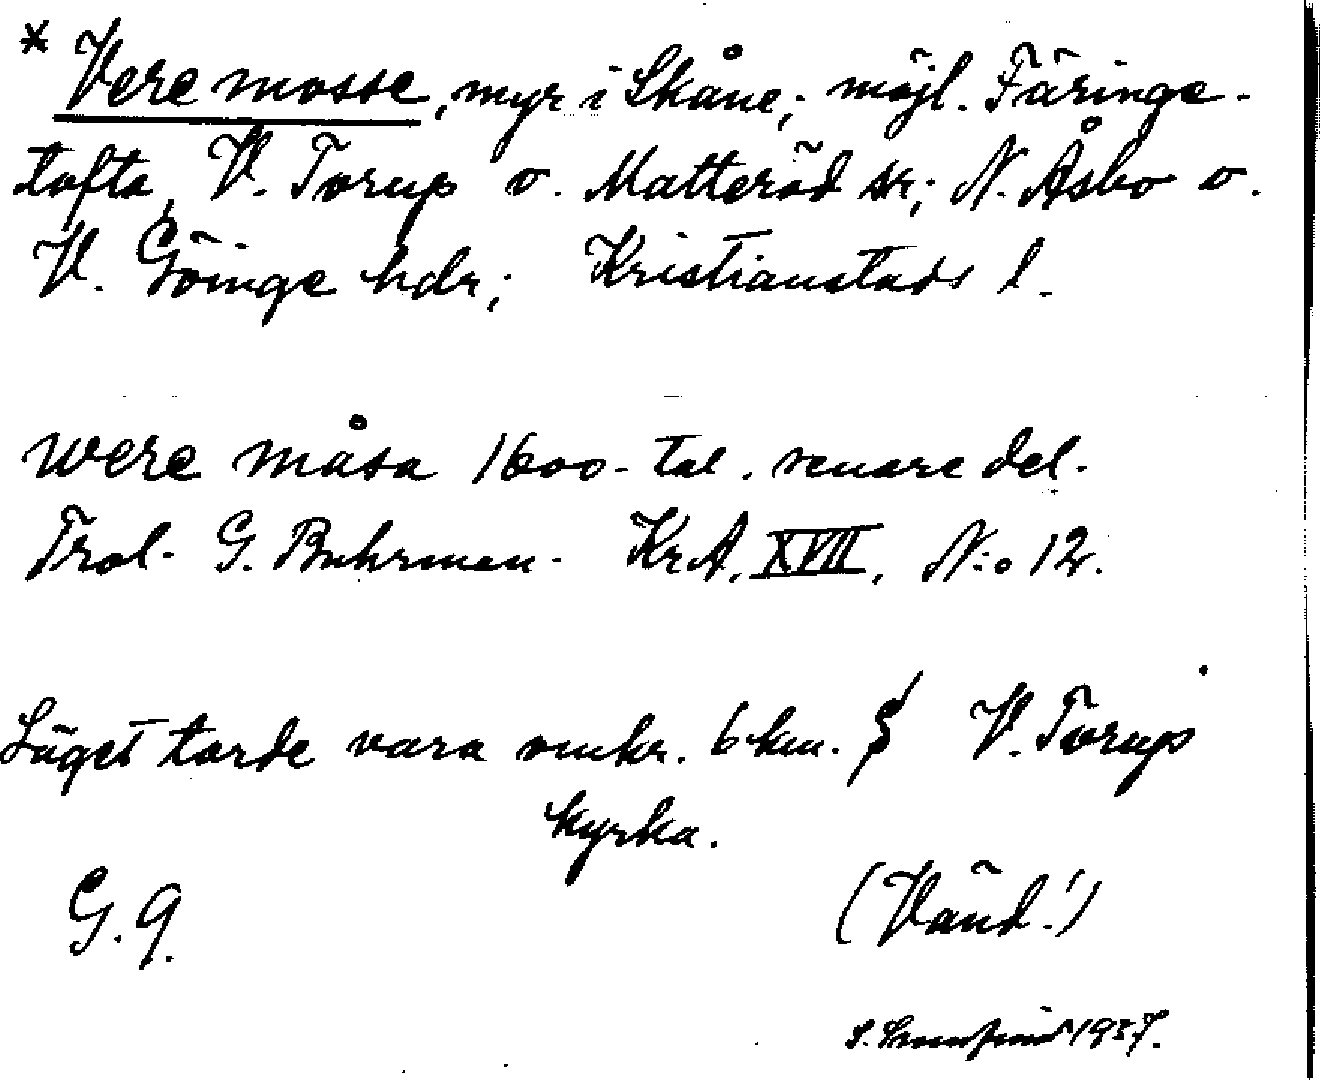 * Vere mosse, myr i Skåne; möjl. Färinge-
tofta, V. Torup o. Matteröd sr; N. Åsbo o.
V. Göinge hdr; Kristianstads l.
Were måsa 1600-tal. senare del.
Trol. G. Buhrman. KrA, XVII, N:o 12.
Läget torde vara omkr. 6 km. S V. Torups
kyrka.
(Vänd!)
G. 9.
1937.